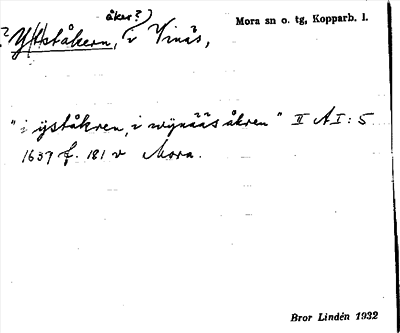 åker?)
?Y(t)ståkern, i Vinäs,
Mora sn o. tg, Kopparb. l.
"i ÿståkren, i wÿnääs åkren" II A I: 5
1637 f. 181 v Mora.
Bror Lindén 1932